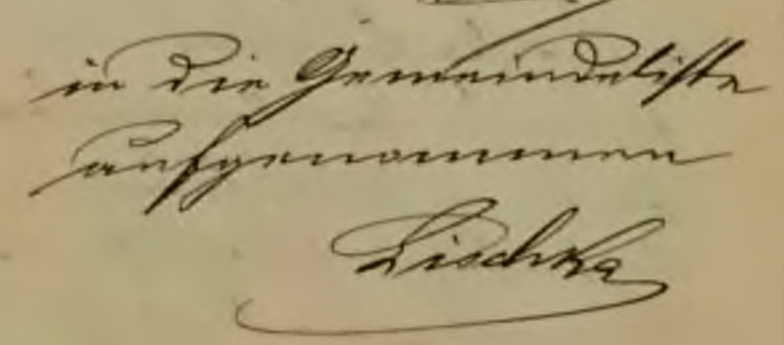 in die Gemeindeliste
aufgenommen
Lischka